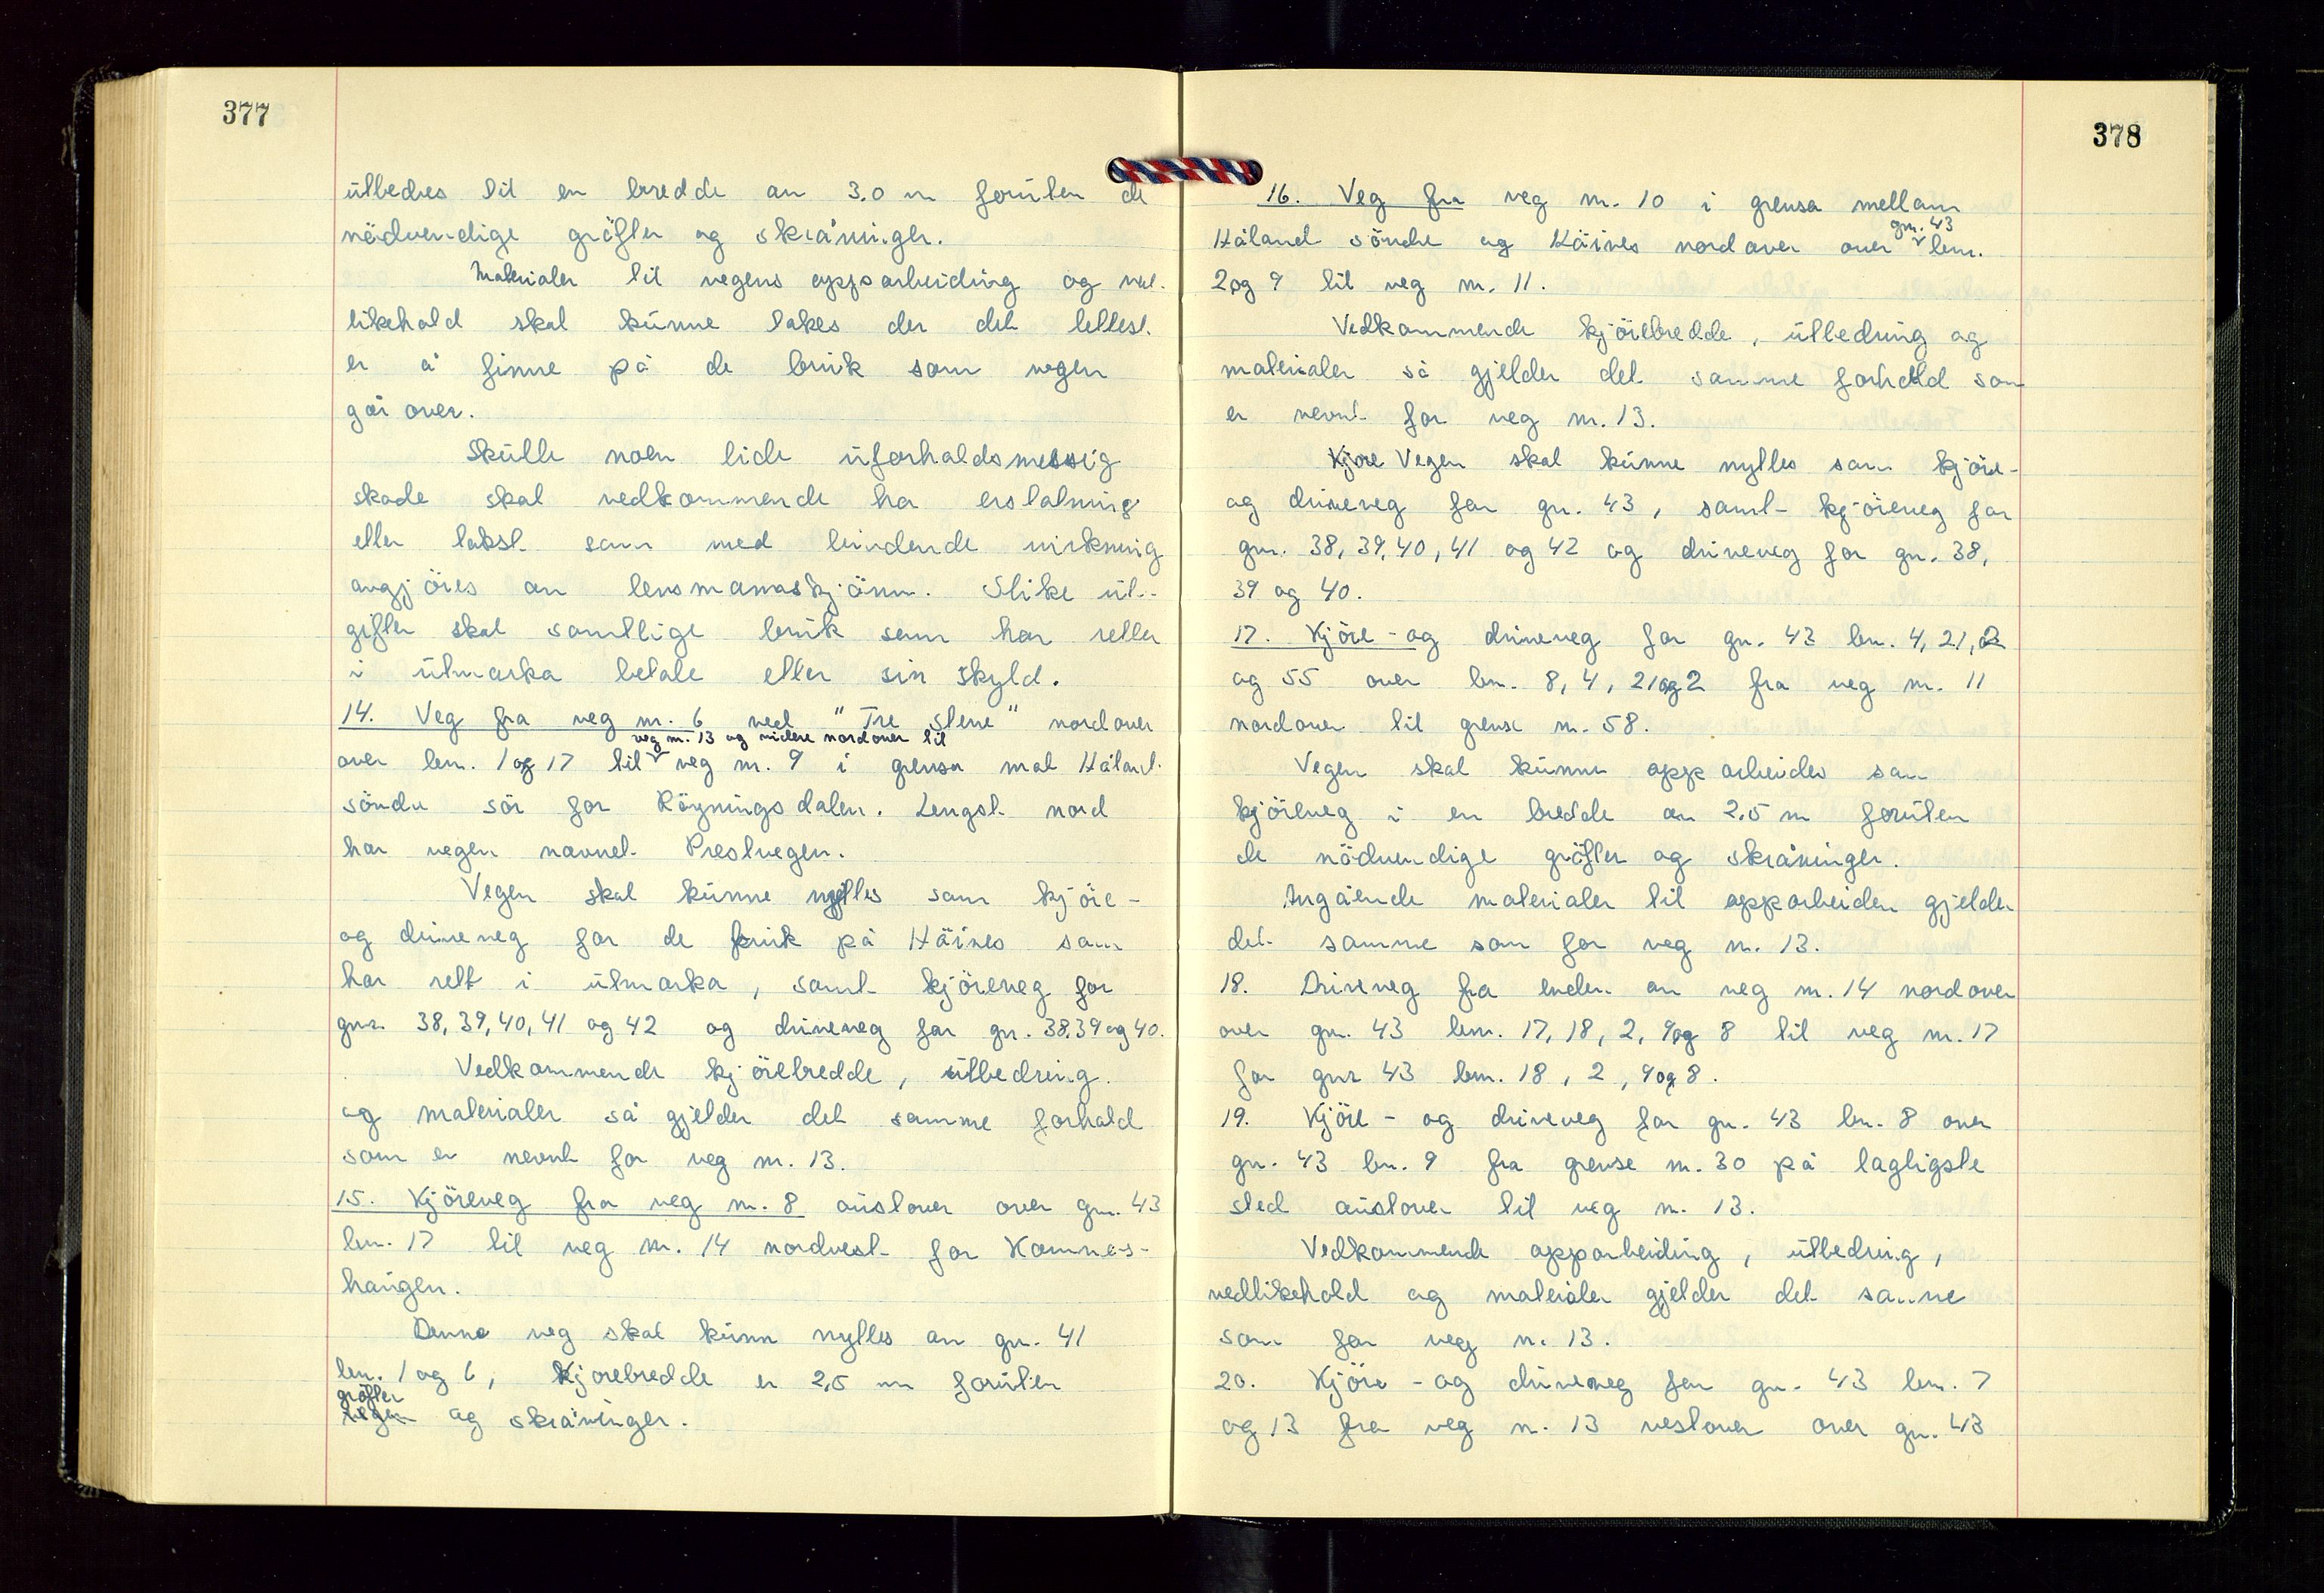 377
utbedres til en bredde av 3.0 m foruten de
nödvendige gröfter og skråninger.
Materialer til vegens opparbeiding og ved-
likehold skal kunne takes der det lettest
er å finne på de bruk som vegen
går over.
Skulle noen lide uforholdsmessig
skade skal vedkommende ha erstatning
etter takst som med bindende virkning
avgjöres av lensmannsskjönn. Slike ut-
gifter skal samtlige bruk som har retter
i utmarka betale etter sin skyld.
14. Veg fra veg nr. 6 ved "Tre stene" nordover
veg nr. 13 og videre nordover til
over bnr. 1 og 17 til veg nr. 9 i grensa mot Håland
söndre sör for Röyningsdalen. Lengst nord
har vegen navnet Prestvegen.
Vegen skal kunne nyttes som kjöre-
og driveveg for de bruk på Häines som
har rett i utmarka, samt kjöreveg for
gnr. 38, 39, 40, 41 og 42 og driveveg for gnr. 38, 39 og 40.
Vedkommende kjörebredde, utbedring
og materialer så gjelder det samme forhold
som er nevnt for veg nr. 13.
15. Kjöreveg fra veg nr. 8 austover over gnr. 43
bnr. 17 til veg nr. 14 nordvest for Kamnes-
haugen.
Denne veg skal kunn nyttes av gnr. 41
bnr. 1 og 6, Kjorebredde er 2,5 m foruten
gröfter
og skråninger.
378
16. Veg fra veg nr. 10 i grensa mellom
gnr. 43
Håland söndre og Häines nordover over bnr.
2 og 9 til veg nr. 11.
Vedkommende kjörebredde, utbedring og
materialer så gjelder det samme forhold som
er nevnt for veg nr. 13.
Kjore Vegen skal kunne nyttes som kjöre-
og driveveg for gnr. 43, samt kjöreveg for
gnr. 38, 39, 40, 41 og 42 og driveveg for gnr. 38,
39 og 40.
17. Kjöre- og driveveg for gnr. 43 bnr. 4, 21, 2
og 55 over bnr. 8, 4, 21 og 2 fra veg nr. 11
nordover til grense nr. 58.
Vegen skal kunne opparbeides som
kjöreveg i en bredde av 2,5 m foruten
de nödvendige gröfter og skråninger.
Angående materialer til opparbeiden gjelder
det samme som for veg nr. 13.
18. Driveveg fra enden av veg nr. 14 nordover
over gnr. 43 bnr. 17, 18, 2, 9 og 8 til veg nr. 17
for gnr 43 bnr. 18, 2, 9 og 8.
19. Kjöre- og driveveg for gnr. 43 bnr. 8 over
gnr. 43 bnr. 9 fra grense nr. 30 på lagligste
sted austover til veg nr. 13.
Vedkommende opparbeiding, utbedring,
vedlikehold og materialer gjelder det samme
som for veg nr. 13.
20. Kjöre- og driveveg for gnr. 43 bnr. 7
og 13 fra veg nr. 13 vestover over gnr. 43